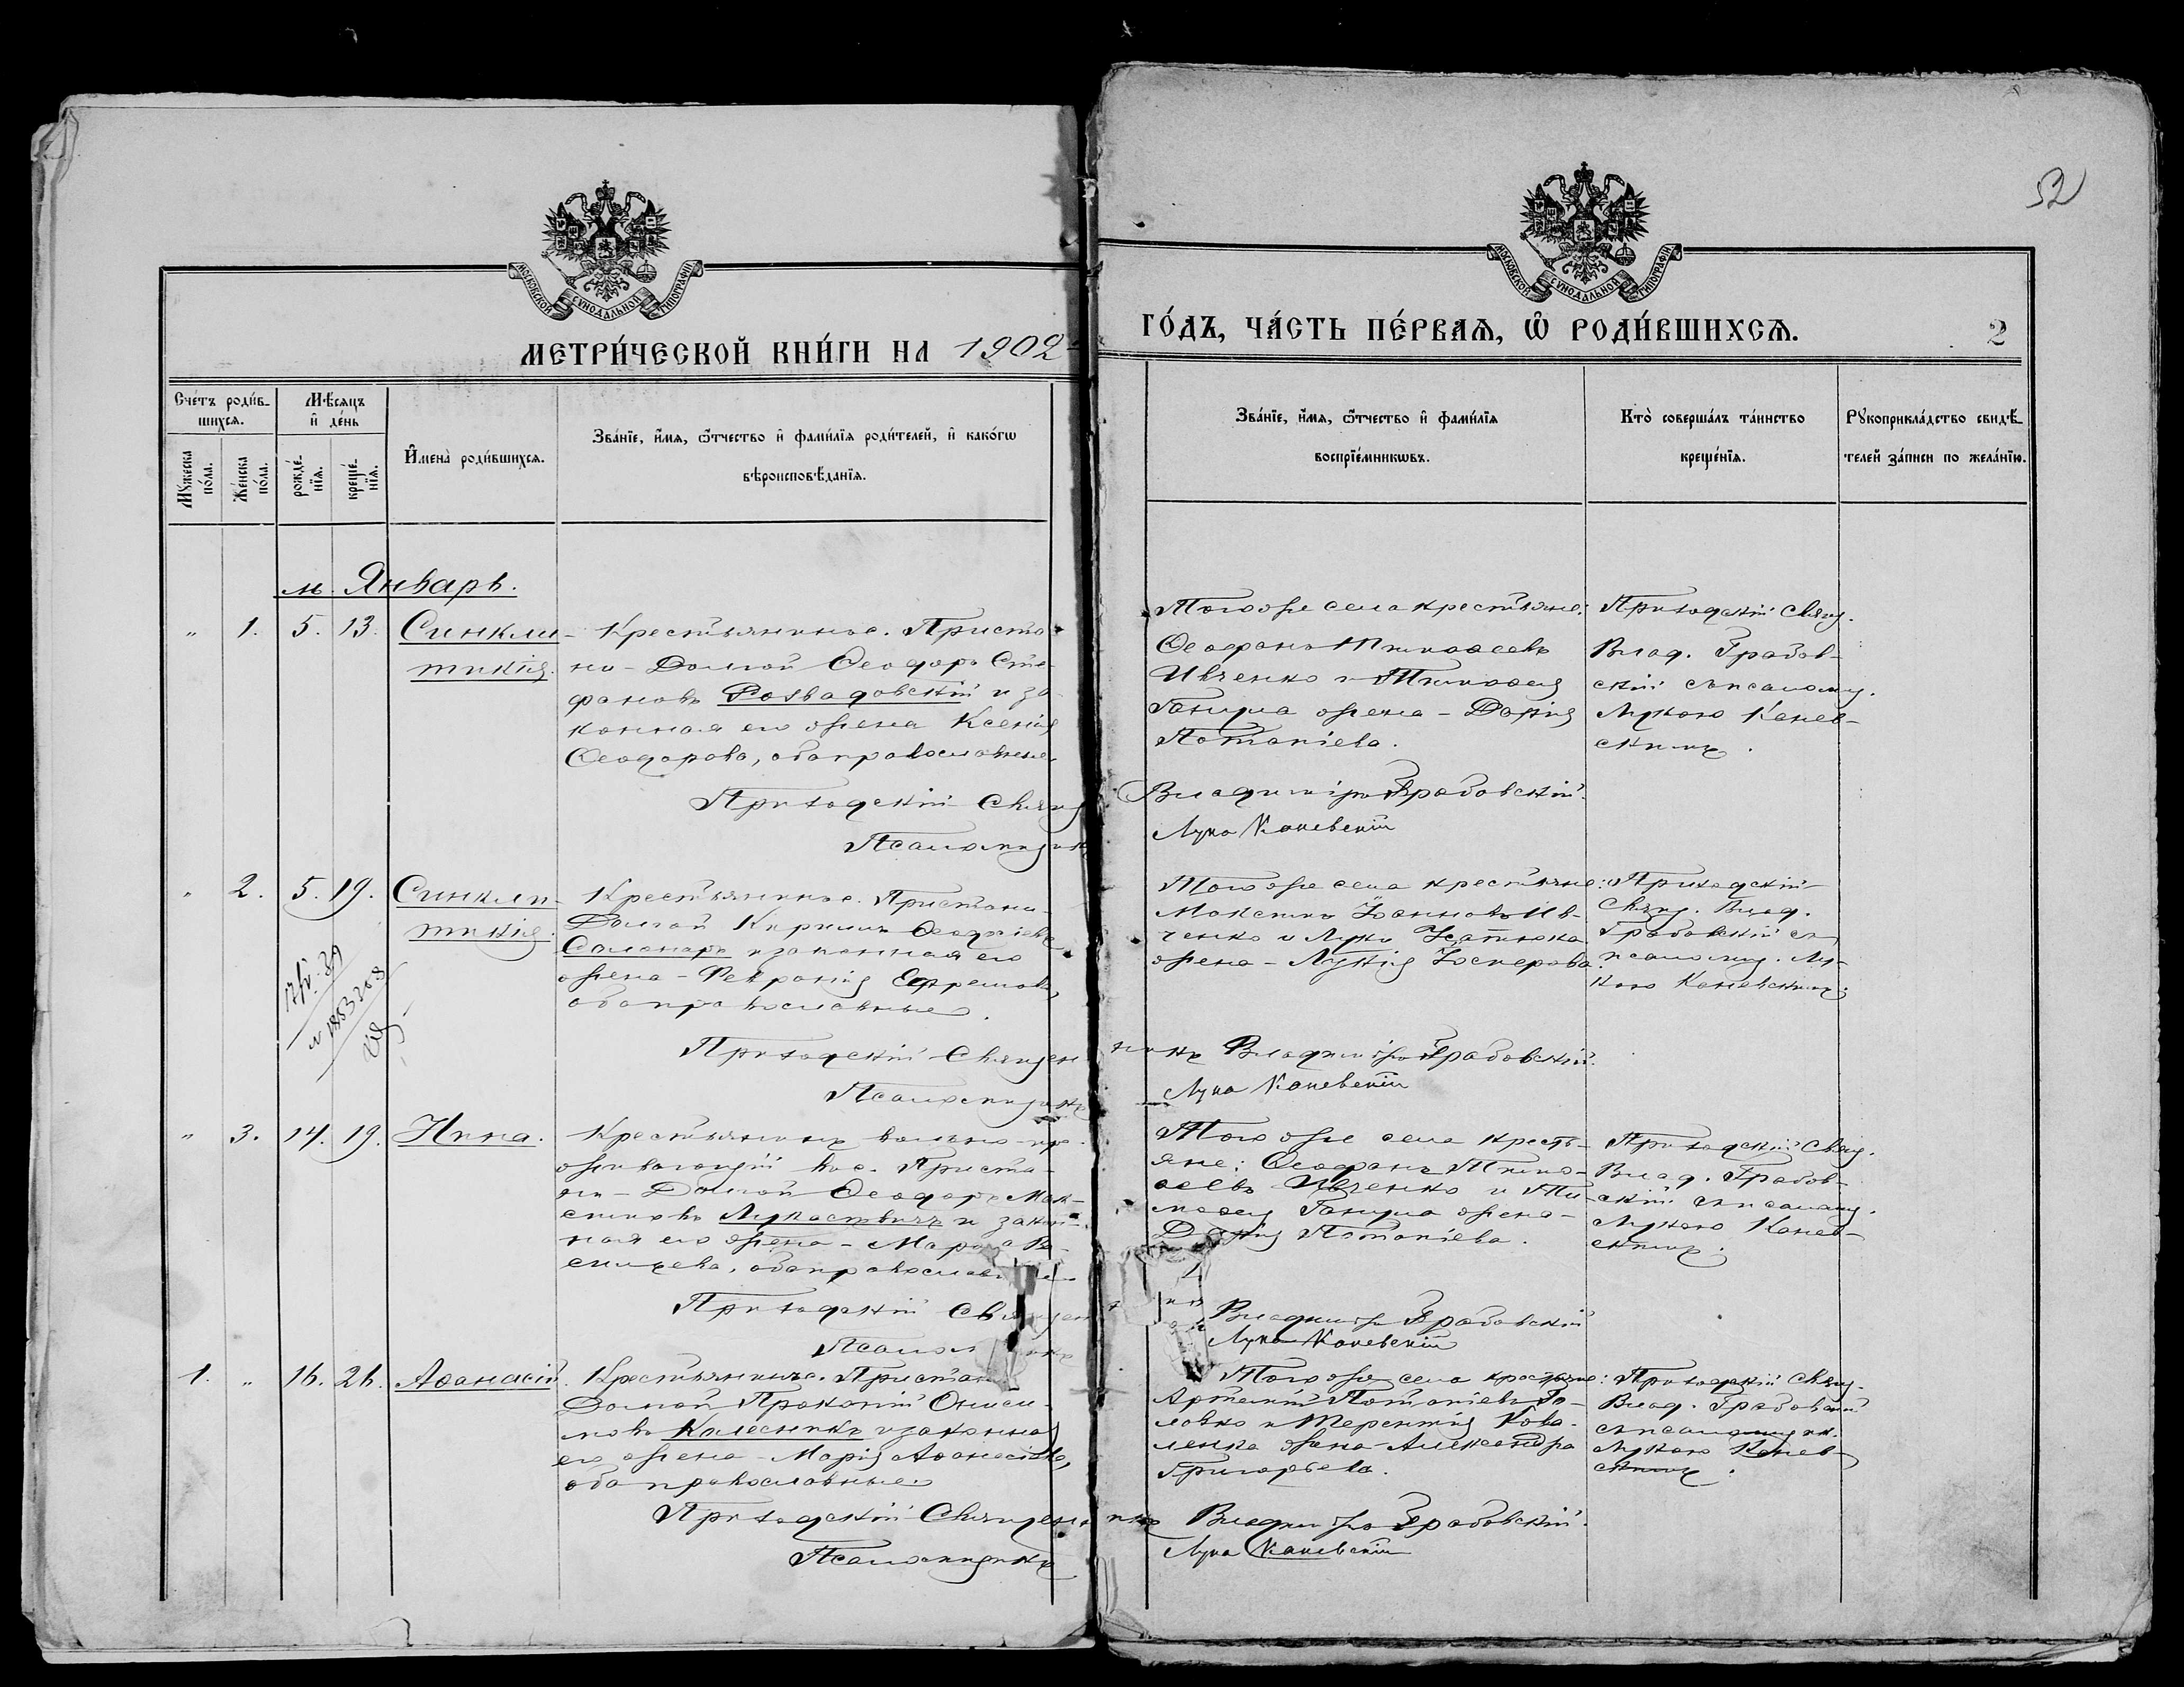 52
МОСКОВСКОЙ СУНОДАЛЬНОЙ ТИПОГРАФІИ
МОСКОВСКОЙ СУНОДАЛЬНОЙ ТИПОГРАФІИ
МЕТРИ́ЧЕСКОЙ КНИ́ГИ НА 1902
ГО́ДЪ, ЧА́СТЬ ПЕ́РВАѦ, Ѡ҆ РОДИ́ВШИХСѦ.
2
Сче́тъ роди́в-
шихсѧ.
Мꙋ́жеска по́ла.
Же́нска по́ла.
Мѣ́сѧцъ
и҆ де́нь
рожде́-
нїѧ.
креще́-
нїѧ.
И҆мена̀ роди́вшихсѧ.
Зва́нїе, и҆́мѧ, ѻ҆́тчество и҆ фами́лїѧ роди́телей, и҆ како́гѡ
вѣроисповѣ́данїѧ.
Зва́нїе, и҆́мѧ, ѻ҆́тчество и҆ фами́лїѧ
воспрїе́мникѡвъ.
Кто̀ соверша́лъ та́инство
креще́нїѧ.
Рꙋкоприкла́дство свидѣ́-
телей за́писи по жела́нїю.
м. Январь.
" 1. 5. 13. Синкли-
тикія.
Крестьянинъ с. Приста-
ни-Долгой Ѳеодоръ Сте-
фановъ Розвадовскій и за-
конная его жена Ксенія
Ѳеодорова, оба православные
Приходскій Свящ
Псаломщикъ
Того же села крестьяне:
Ѳеофанъ Тимоѳеевъ
Ивченко и Тимоѳея
Ганула жена - Дарія
Потапіева.
Владиміръ Грабовскій.
Лука Каневскій
Приходскій Свящ.
Влад. Грабов-
скій съ псаломщ.
Лукою Канев-
скимъ.
" 2. 5. 19. Синкли-
тикія.
Крестьянинъ с. Пристани-
Долгой Кириллъ
и законная его
жена - Февронія Ефремова,
оба православные.
Приходскій Священ
Псаломщикъ
Того же села крестьяне:
Максимъ Іоанновъ Ив-
ченко и Луки
жена - Лукія
никъ Владиміръ Грабовскій.
Лука Каневскій
Приходскій
Свящ. Влад.
Грабовскій съ
псаломщ. Лу-
кою Каневскимъ.
" 3. 14. 19. Нина.
Крестьянинъ вольно-про-
живающій въ с. Приста-
ни-Долгой Ѳеодоръ Мак-
симовъ и закон-
ная его жена - Ва-
сильева, оба православные
Приходскій Священ
Того же села кресть-
яне: Ѳеофанъ Тимо-
ѳеевъ Ивченко и Ти-
моѳея Ганула жена -
Дарія Потапіева.
Владиміръ Грабовскій
Лука Каневскій
Приходскій Свящ.
Влад. Грабов-
скій съ псаломщ.
Лукою Канев-
скимъ.
1. " 16. 26. Аѳанасій.
Крестьянинъ с. Пристани
Долгой Прокопій Ониси-
мовъ Колесникъ и законная
его жена - Марія Аѳанасіева,
оба православные.
Приходскій Священ
Псаломщикъ
Того же села крестьяне:
Артемій Потапіевъ Го-
ловко и Терентія Кова-
ленка жена - Александра
Григорьева.
никъ Владиміръ Грабовскій.
Лука Каневскій
Приходскій Свящ.
Влад. Грабовскій
съ псаломщик.
Лукою Канев-
скимъ.